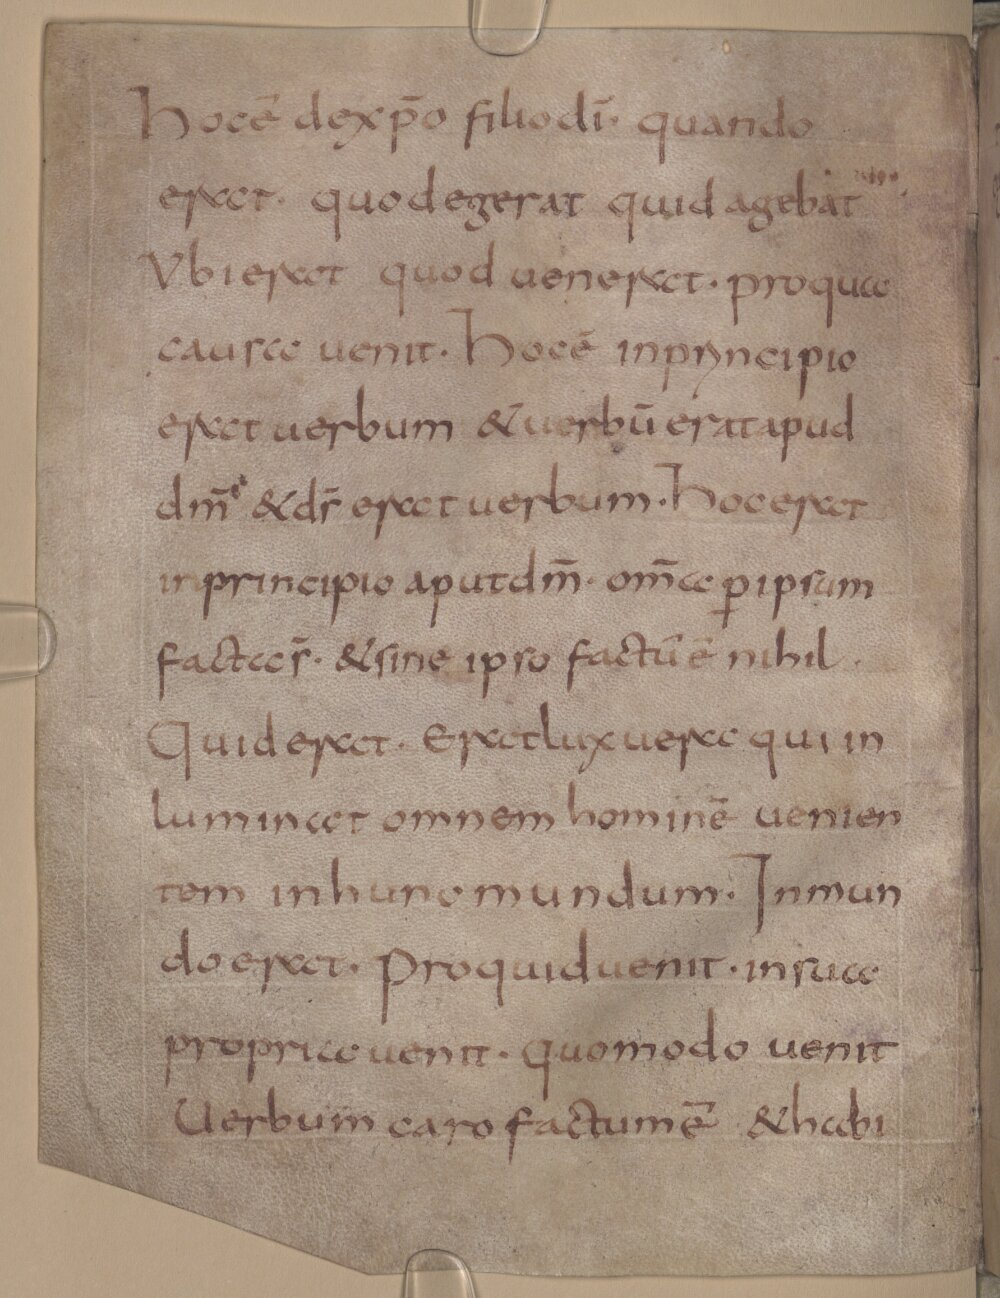 Hocē dexp̄o filiodī· quando
erat· quodegerat quid agebat
Vbierat quod uenerat· proqua
causa uenit· Hocē inprincipio
erat uerbum & uerbū eratapud
dm̄ &ds̄ erat uerbum· Hocerat
inprincipio aputdm̄· om̄a ꝑipsum
factas̄· &sine ipso factūē nihil·
Quiderat· Eratlux uera qui in
luminat omnem hominē uenien
tem inhunc mundum· Inmun
doerat· Proquiduenit· insua
propria uenit· quomodo uenit
Uerbum caro factumē &habi